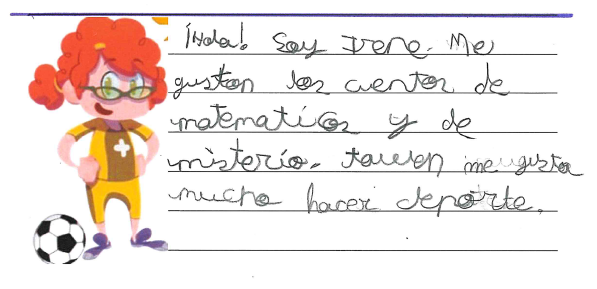 ¡Hola! Soy Irene. Me
gustan los cuentos de
matematicas y de
misterio. tanvien me gusta
mucho hacer deporte.